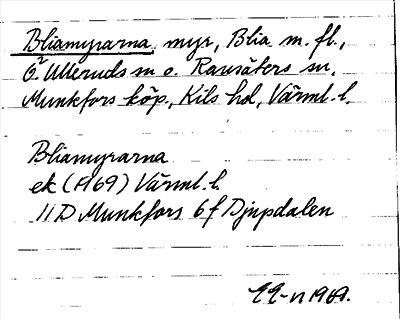 Bliamyrarna, myr, Blia m. fl.,
Ö. Ulleruds sn o. Ransäters sn,
Munkfors köp., Kils hd, Värml. l.
Bliamyrarna
ek (FI69) Värml. l.
11D Munkfors 6f Djupdalen
1969.